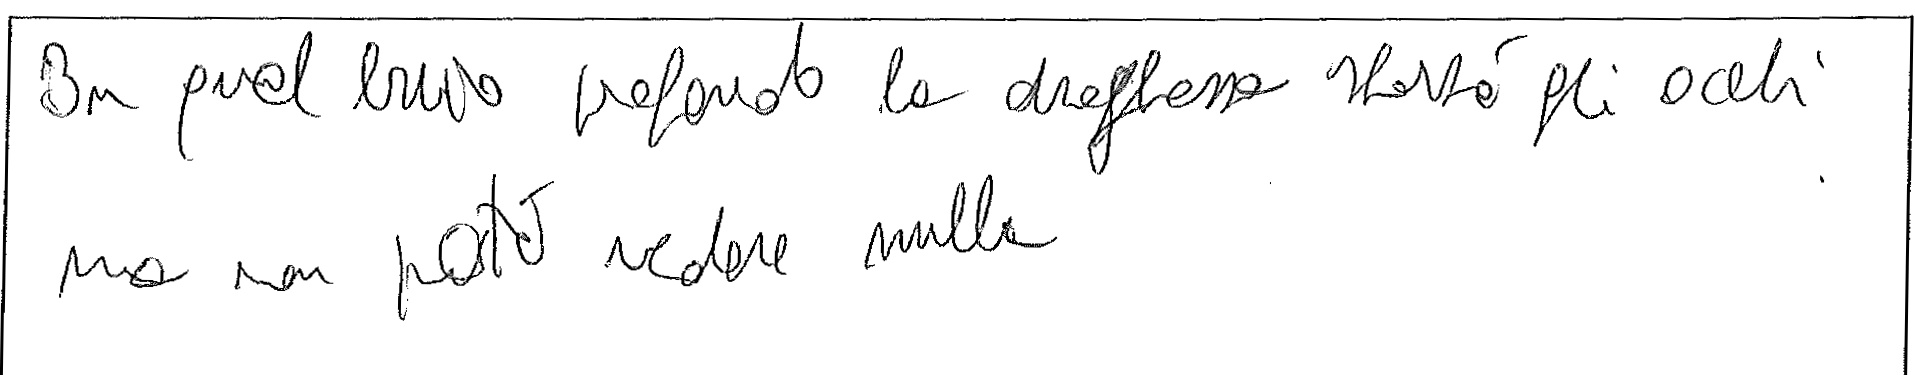 In quel buio profondo la draghessa sbarrò gli occhi
ma non poté vedere nulla